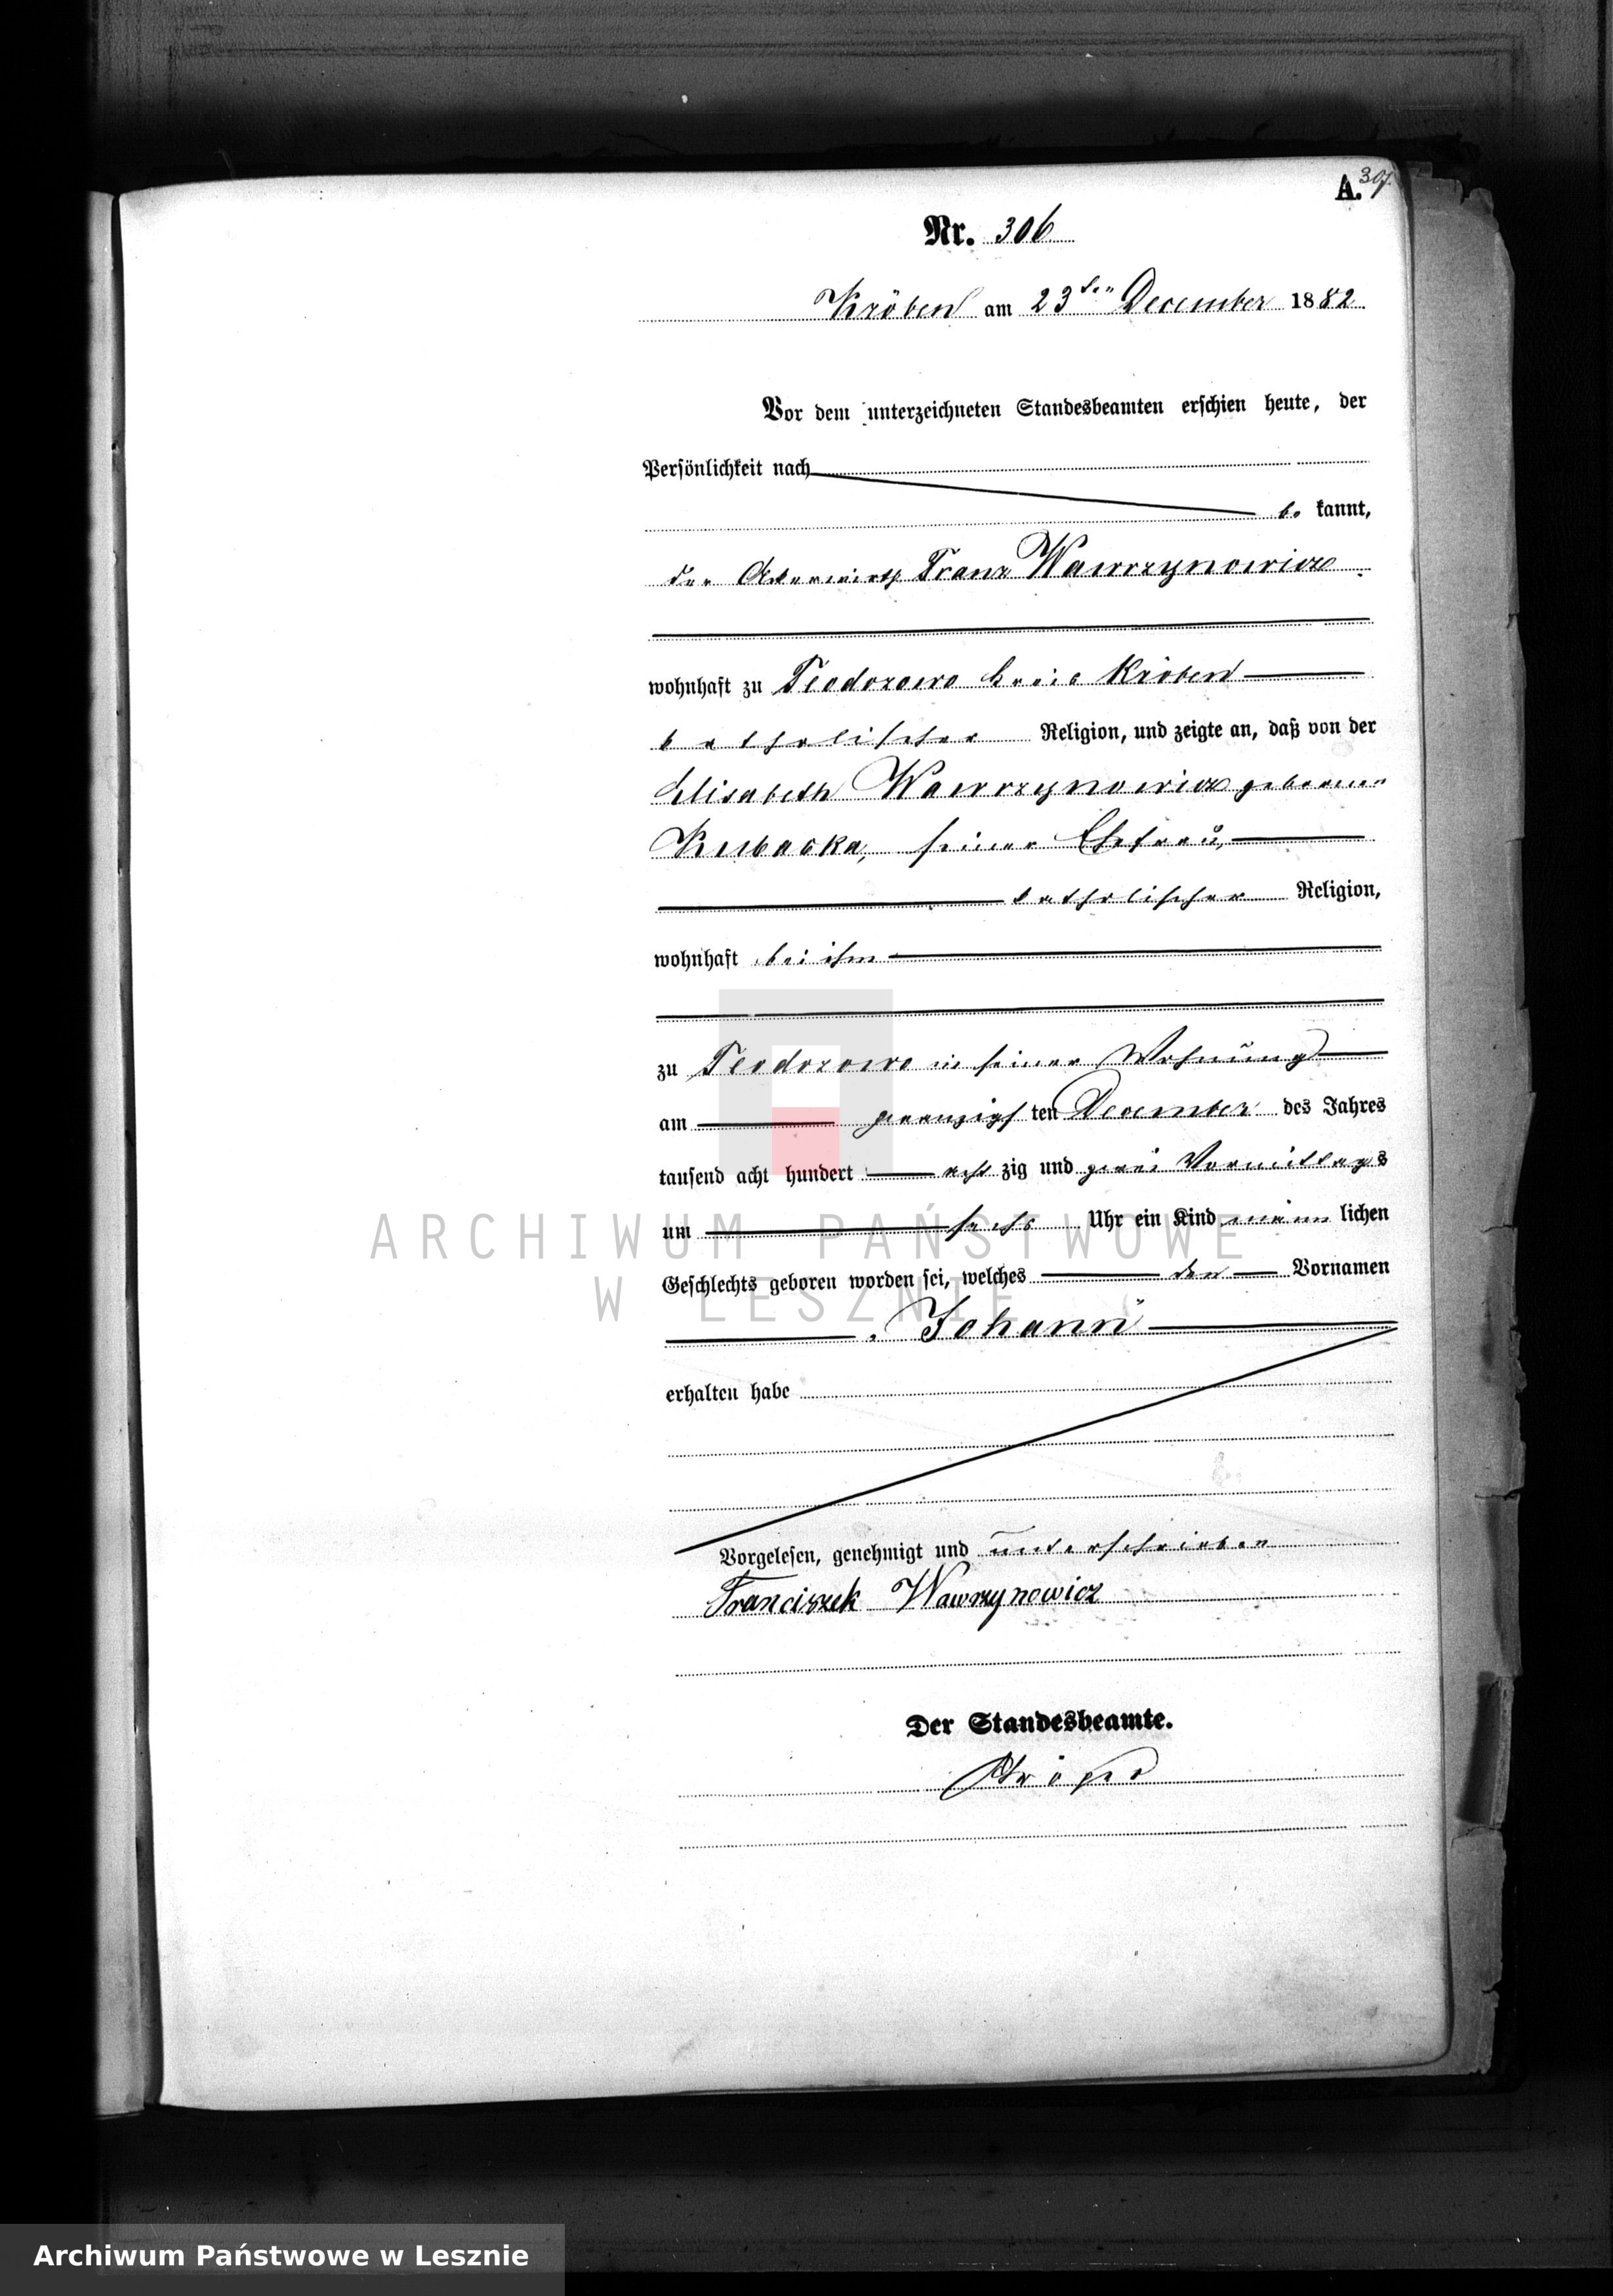 A. 307.
Nr. 306
Kröben am 23ten December 1882
Vor dem unterzeichneten Standesbeamten erschien heute, der
Persönlichkeit nach
be kannt,
der Ackerwirth Franz Wawrzynowicz
wohnhaft zu Teodorowo Kreis Kröben
katholischer Religion, und zeigte an, daß von der
Elisabeth Wawrzynowicz geborenen
Kubacka, seiner Ehefrau,
katholischer Religion,
wohnhaft bei ihm
zu Teodorowo in seiner Wohnung
am zwanzigsten December des Jahres
tausend acht hundert acht zig und zwei Vormittags
um sechs Uhr ein Kind männ lichen
Geschlechts geboren worden sei, welches den Vornamen
Johann
erhalten habe
Vorgelesen, genehmigt und unterschrieben
Franciszek Wawrzynowicz
Der Standesbeamte.
ARCHIWUM PAŃSTWOWE
W LESZNIE
Archiwum Państwowe w Lesznie